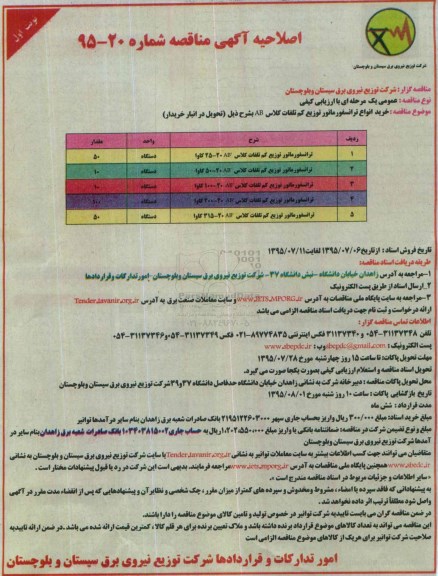 نوبت اول
اصلاحیه آگهی مناقصه شماره ۲۰-۹۵
شرکت توزیع نیروی برق سیستان و بلوچستان
مناقصه گزار: شرکت توزیع نیروی برق سیستان وبلوچستان
نوع مناقصه: عمومی یک مرحله ای با ارزیابی کیفی
موضوع مناقصه: خرید انواع ترانسفورماتور توزیع کم تلفات کلاس AB بشرح ذیل (تحویل در انبار خریدار)
ردیف شرح واحد مقدار
۱ ترانسفورماتور توزیع کم تلفات کلاس AB ۲۰-۲۵ کاوا دستگاه ۵۰
۲ ترانسفورماتور توزیع کم تلفات کلاس AB ۲۰-۵۰ کاوا دستگاه ۱۰
۳ ترانسفورماتور توزیع کم تلفات کلاس AB ۲۰-۱۰۰ کاوا دستگاه ۱۰
۴ ترانسفورماتور توزیع کم تلفات کلاس AB ۲۰-۲۰۰ کاوا دستگاه
۵ ترانسفورماتور توزیع کم تلفات کلاس AB ۲۰-۳۱۵ کاوا دستگاه ۵۰
تاریخ فروش اسناد: ازتاریخ ۱۳۹۵/۰۷/۰۶ لغایت ۱۳۹۵/۰۷/۱۱
طریقه دریافت اسناد مناقصه:
۱-مراجعه به آدرس زاهدان خیابان دانشگاه -نبش دانشگاه ۳۷- شرکت توزیع نیروی برق سیستان وبلوچستان -امورتدارکات وقراردادها
۲-ارسال اسناد از طریق پست الکترونیک
۳-مراجعه به سایت پایگاه ملی مناقصات به آدرس www.IETS.MPORG.ir و سایت معاملات صنعت برق به آدرس Tender.tavanir.org.ir
ارائه درخواست و ثبت نام جهت دریافت اسناد مناقصه الزامی می باشد
اطلاعات تماس مناقصه گزار:
تلفن ۳۱۱۳۷۲۴۸-۰۵۴ و ۳۱۱۳۷۳۴۰ فکس اینترنتی ۸۹۷۷۴۸۳۵-۰۲۱ فکس ۳۱۱۳۷۳۴۹-۰۵۴ و ۳۱۱۳۷۳۴۶-۰۵۴
پست الکترونیک: sbepdc@gmail.com وب: www.sbepdc.ir
مهلت تحویل پاکات: تا ساعت ۱۵ روز چهارشنبه مورخ ۱۳۹۵/۰۷/۲۸
تحویل اسناد مناقصه و استعلام ارزیابی کیفی بصورت یکجا صورت می گیرد.
محل تحویل پاکات مناقصه: دبیرخانه شرکت به نشانی زاهدان خیابان دانشگاه حدفاصل دانشگاه ۳۷و۳۹ شرکت توزیع نیروی برق سیستان وبلوچستان
تاریخ بازگشایی پاکات: ساعت ۱۰ روز شنبه مورخ ۱۳۹۵/۰۸/۰۱
مدت قرارداد: شش ماه
مبلغ خرید اسناد: مبلغ ۳۰۰/۰۰۰ ریال واریز بحساب جاری سپهر بانک صادرات شعبه برق زاهدان بنام سایر درآمدها توانیر
مبلغ و نوع تضمین شرکت در مناقصه: ضمانتنامه بانکی یا واریز مبلغ ریال به حساب جاری بانک صادرات شعبه برق زاهدان بنام سایر در
آمدها شرکت توزیع نیروی برق سیستان وبلوچستان
متقاضیان می توانند جهت کسب اطلاعات بیشتر به سایت معاملات توانیر به نشانی Tender.tavanir.org.ir یا سایت شرکت توزیع نیروی برق سیستان و بلوچستان به نشانی
www.sbepdc.ir وهمچنین پایگاه ملی مناقصات به آدرس www.iets.mporg.ir مراجعه فرمایند. بدیهی است این شرکت در رد یا قبول پیشنهادات مختار است.
- سایر اطلاعات و جزئیات مربوط در اسناد مناقصه مندرج است.
به پیشنهاداتی که فاقد سپرده یا امضاء، مشروط و مخدوش و سپرده های کمتر از میزان مقرر، چک شخصی و نظایر آن و پیشنهادهایی که پس از انقضاء مدت مقرر در آگهی
واصل شود مطلقا ترتیب اثر داده نخواهد شد.
در ضمن مناقصه گران می بایست تاییدیه شرکت توانیر در خصوص تولید و تامین کالای موضوع مناقصه را دارا باشند.
این مناقصه می تواند به تعداد کالاهای موضوع قرارداد برنده داشته باشد و ملاک تعیین برنده برای هر قلم کالا، کمترین قیمت ارائه شده می باشد. در ضمن ارائه تاییدیه
صلاحیت شرکت توانیر برای هریک از کالاهای موضوع مناقصه الزامی است
امور تدارکات و قراردادها شرکت توزیع نیروی برق سیستان و بلوچستان